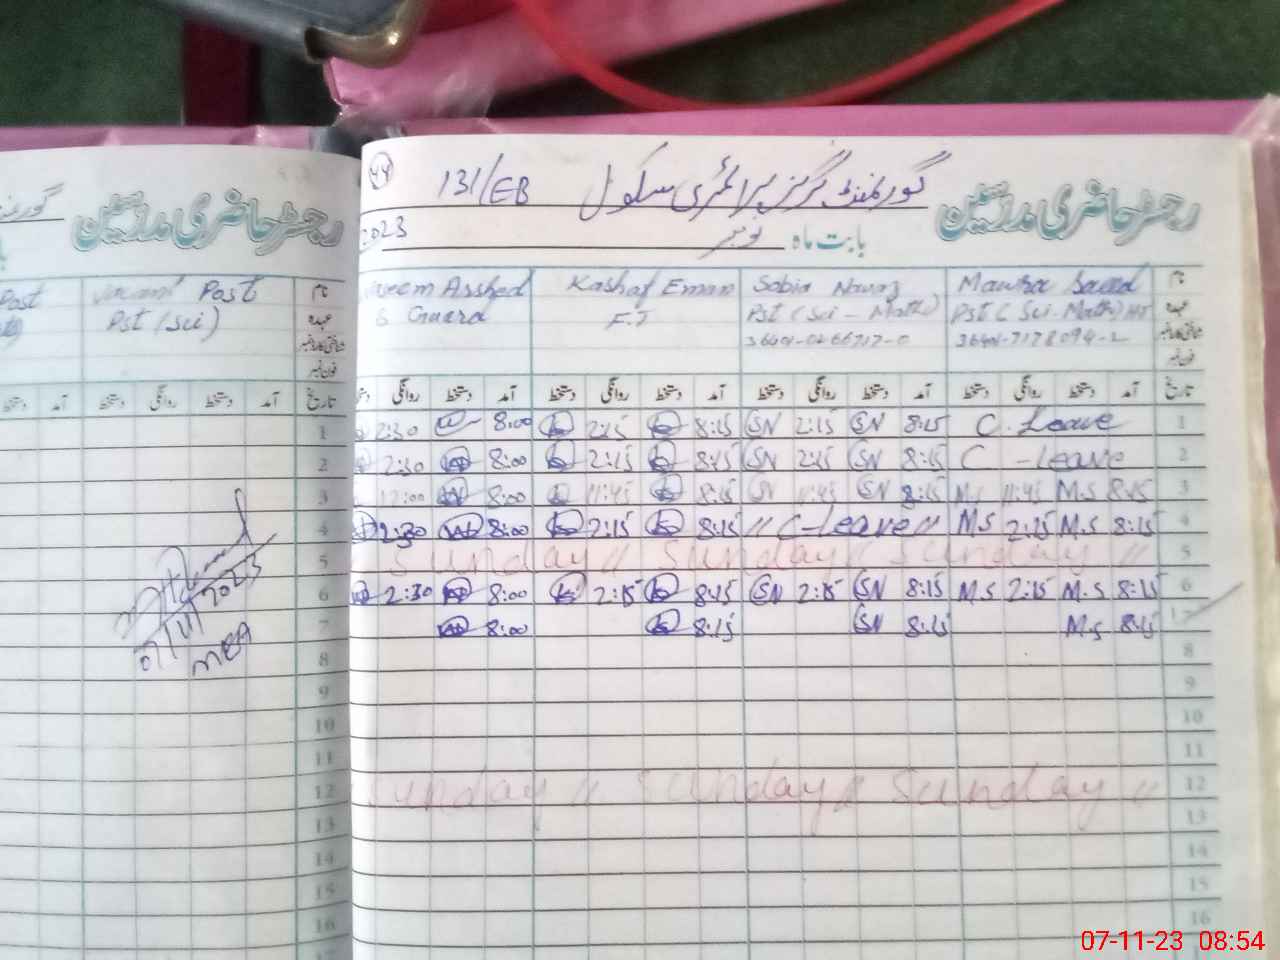 44 131/EB گورنمنٹ گرلز پرائمری سکول
رجسٹر حاضری مدرسین
2023 بابت ماہ نومبر
نام Mawra Sobia Nawaz Kashaf Eman Arshad
عہدہ Pst (Sci. Math) Pst (Sci - Math) F.T Guard
تاریخ آمد دستخط روانگی دستخط آمد دستخط روانگی دستخط آمد دستخط روانگی دستخط آمد دستخط روانگی
2:30 8:00 2:15 8:15 SN 2:15 SN 8:15 C. Leave 1
2:30 8:00 2:15 8:15 SN 2:15 SN 8:15 C - leave 2
12:00 8:00 11:45 8:15 SN 11:45 SN 8:15 M.S 11:45 M.S 8:15 3
2:30 8:00 2:15 8:15 // C-Leave // M.S 2:15 M.S 8:15 4
Sunday // Sunday // Sunday // 5
2:30 8:00 2:15 8:15 SN 2:15 SN 8:15 M.S 2:15 M.S 8:15 6
8:00 8:15 SN 8:15 M.S 8:15 7
8
9
10
11
Sunday // Sunday // Sunday // 12
13
14
15
16
رجسٹر حاضری مدرسین
Post Vacant Post نام
Pst (Sci) عہدہ
فون نمبر
دستخط آمد دستخط روانگی دستخط آمد تاریخ
1
2
3
4
5
6
7
8
9
10
11
12
13
14
15
16
07/11/2023
MEA
07-11-23 08:54